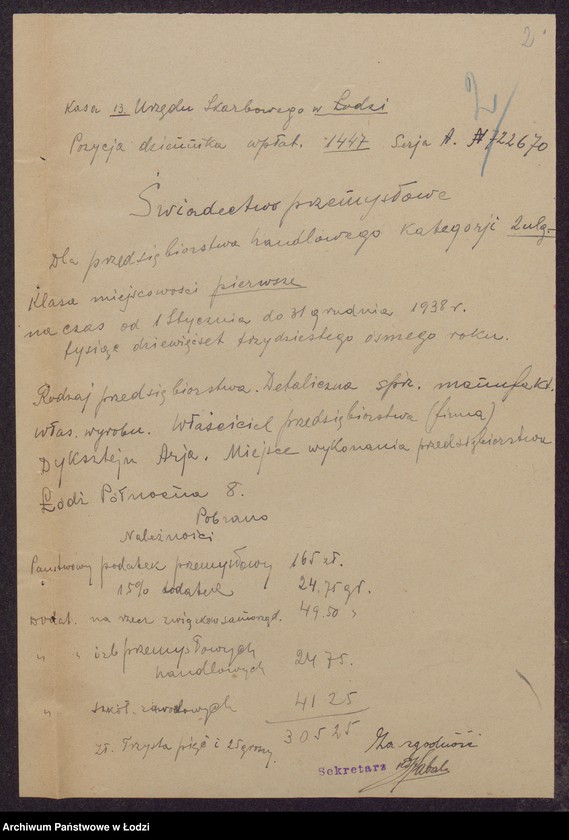 2
2
Kasa 13. Urzędu Skarbowego w Łodzi
Pozycja dziennika wpłat. 1447 Serja A. N 722670
Świadectwo przemysłowe
Dla przedsiębiorstwa handlowego kategorji 2 ulg.
Klasa miejscowości pierwsze
na czas od 1 Stycznia do 31 grudnia 1938 r.
tysiąc dziewięset trzydziestego ósmego roku.
Rodzaj przedsiębiorstwa. Detaliczna sprz. manufakt.
włas. wyrobu. Właściciel przedsiębiorstwa (firma)
Dyksztejn Arja. Miejsce wykonania przedsiębiorstwa
Łódź Północna 8.
Pobrano
Należności
Państwowy podatek przemysłowy 165 zł.
15% dodatek 24.75 gr.
Dodat. na rzecz związków samorząd. 49.50 "
" " izb przemysłowych
handlowych 24 75.
" szkół. zawodowych 41 25
zł. Trzysta pięć i 25 groszy. 305 25
Za zgodność
Sekretarz
Archiwum Państwowe w Łodzi